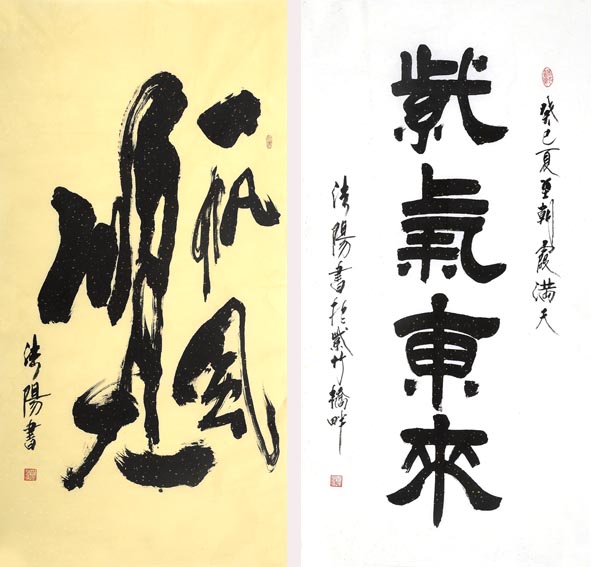 一帆風
順
法陽書
癸巳夏至朝霞滿天
紫氣東來
法陽書於紫竹橋畔